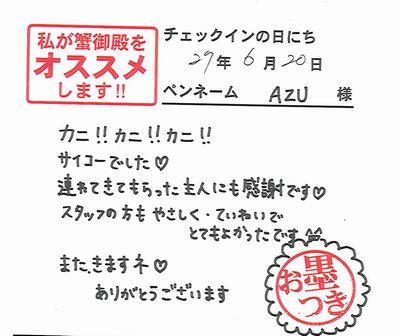 私が蟹御殿を
オススメ
します!!
チェックインの日にち
29年6月20日
ペンネーム AZU 様
カニ!! カニ!! カニ!!
サイコーでした♡
連れてきてもらった主人にも感謝です♡
スタッフの方も やさしく・ていねいで
とてもよかったです
また、きますネ♡
ありがとうございます
お墨つき